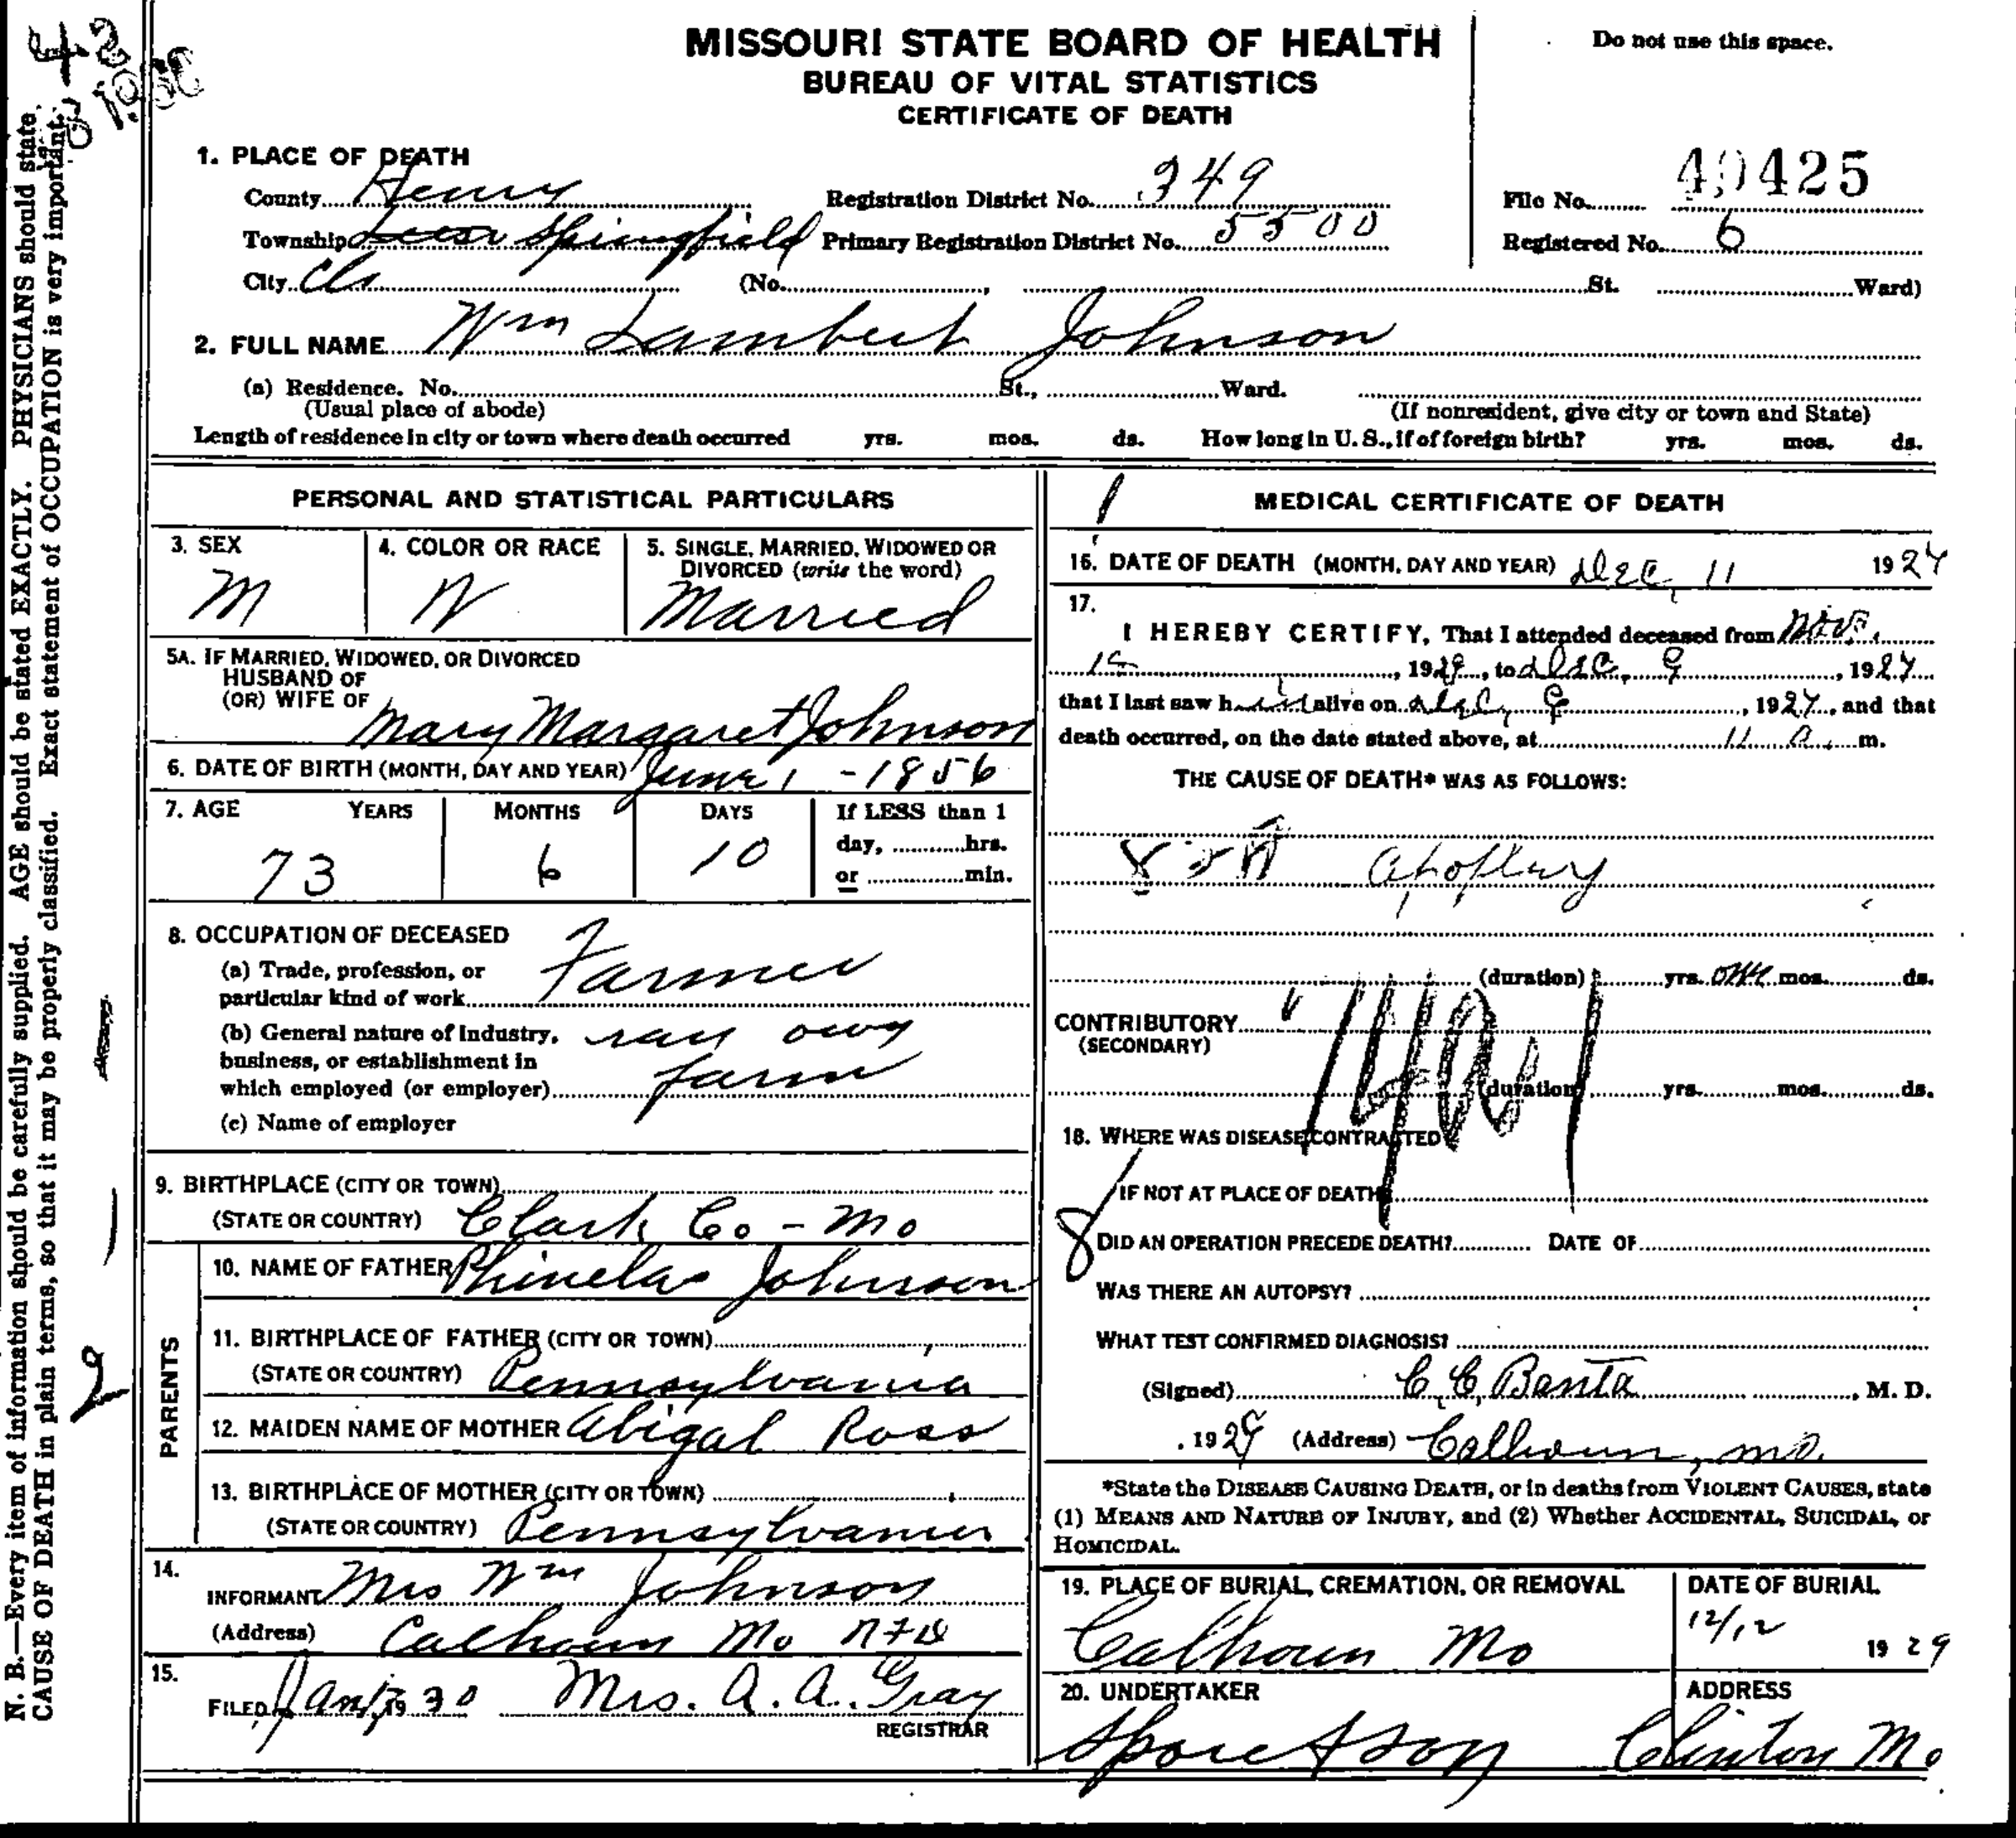 MISSOURI STATE BOARD OF HEALTH
BUREAU OF VITAL STATISTICS
CERTIFICATE OF DEATH
Do not use this space.
1. PLACE OF DEATH
County Henry Registration District No. 349 File No. 40425
Township Springfield Primary Registration District No. 5500 Registered No. 6
City (No. , St. Ward)
2. FULL NAME Wm Lambert Johnson
(a) Residence. No. St., Ward.
(Usual place of abode) (If nonresident, give city or town and State)
Length of residence in city or town where death occurred yrs. mos. ds. How long in U. S., if of foreign birth? yrs. mos. ds.
PERSONAL AND STATISTICAL PARTICULARS
3. SEX 4. COLOR OR RACE 5. SINGLE, MARRIED, WIDOWED OR
DIVORCED (write the word)
M W Married
5A. IF MARRIED, WIDOWED, OR DIVORCED
HUSBAND OF
(OR) WIFE OF Mary Margaret Johnson
6. DATE OF BIRTH (MONTH, DAY AND YEAR) June 1 - 1856
7. AGE YEARS MONTHS DAYS If LESS than 1
day, hrs.
or min.
73 6 10
8. OCCUPATION OF DECEASED
(a) Trade, profession, or
particular kind of work Farmer
(b) General nature of industry,
business, or establishment in
which employed (or employer) own farm
(c) Name of employer
9. BIRTHPLACE (CITY OR TOWN)
(STATE OR COUNTRY) Clark Co - Mo
PARENTS
10. NAME OF FATHER Johnson
11. BIRTHPLACE OF FATHER (CITY OR TOWN)
(STATE OR COUNTRY) Pennsylvania
12. MAIDEN NAME OF MOTHER Abigal Ross
13. BIRTHPLACE OF MOTHER (CITY OR TOWN)
(STATE OR COUNTRY) Pennsylvania
14.
INFORMANT Mrs Wm Johnson
(Address) Calhoun Mo RFD
15.
FILED Jan 1930 Mrs. A. A. Gray
REGISTRAR
MEDICAL CERTIFICATE OF DEATH
16. DATE OF DEATH (MONTH, DAY AND YEAR) Dec, 11 1929
17.
I HEREBY CERTIFY, That I attended deceased from Nov.
, 1929, to Dec. 9, 1929
that I last saw him alive on Dec, 9, 1929, and that
death occurred, on the date stated above, at 11 a. m.
THE CAUSE OF DEATH* WAS AS FOLLOWS:
Apoplexy
(duration) yrs. one mos. ds.
CONTRIBUTORY
(SECONDARY)
(duration) yrs. mos. ds.
18. WHERE WAS DISEASE CONTRACTED
IF NOT AT PLACE OF DEATH
DID AN OPERATION PRECEDE DEATH? DATE OF
WAS THERE AN AUTOPSY?
WHAT TEST CONFIRMED DIAGNOSIS?
(Signed) C. C. Banta, M. D.
, 1929 (Address) Calhoun, Mo.
*State the DISEASE CAUSING DEATH, or in deaths from VIOLENT CAUSES, state
(1) MEANS AND NATURE OF INJURY, and (2) Whether ACCIDENTAL, SUICIDAL, or
HOMICIDAL.
19. PLACE OF BURIAL, CREMATION, OR REMOVAL DATE OF BURIAL
Calhoun Mo 12/12 1929
20. UNDERTAKER ADDRESS
Clinton Mo
N. B.—Every item of information should be carefully supplied. AGE should be stated EXACTLY. PHYSICIANS should state
CAUSE OF DEATH in plain terms, so that it may be properly classified. Exact statement of OCCUPATION is very important.